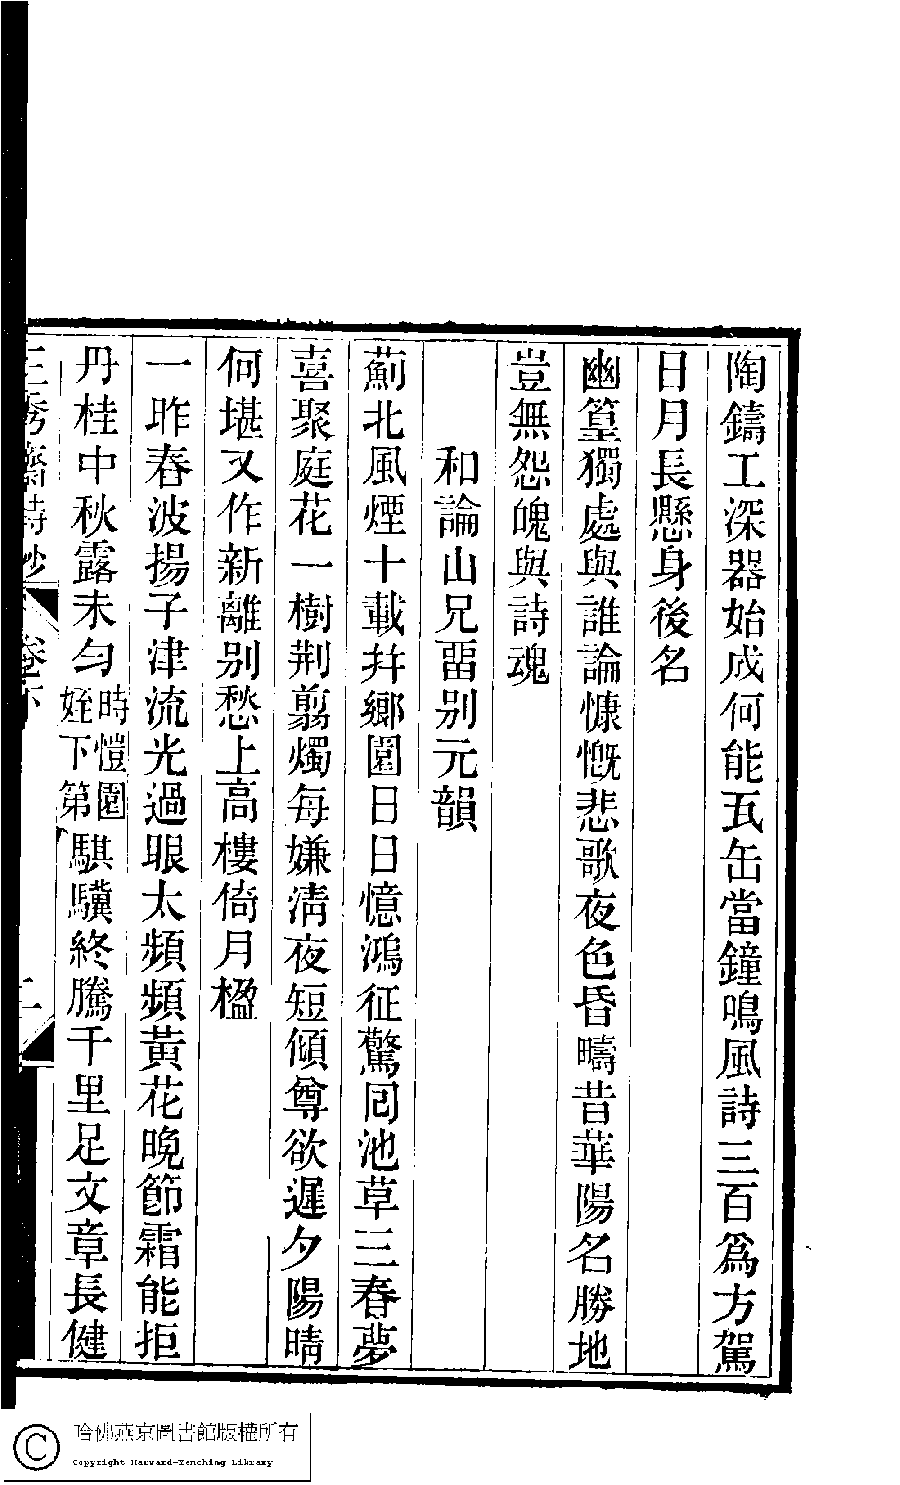 陶鑄工深器始成何能瓦缶當鐘鳴風詩三百爲方駕
日月長懸身後名
幽篁獨處與誰論慷慨悲歌夜色昏疇昔華陽名勝地
豈無怨魄與詩魂
和論山兄畱别元韻
薊北風煙十載幷鄉園日日憶鴻征驚囘池草三春夢
喜聚庭花一樹荆翦燭每嫌淸夜短傾尊欲遲夕陽晴
何堪又作新離别愁上高樓倚月楹
一昨春波揚子津流光過眼太頻頻黃花晚節霜能拒
丹桂中秋露未勻時愷園姪下第騏驥終騰千里足文章長健
三秀齋詩鈔
卷下
二
哈佛燕京圖書館版權所有
Copyright Harvard-Yenching Library